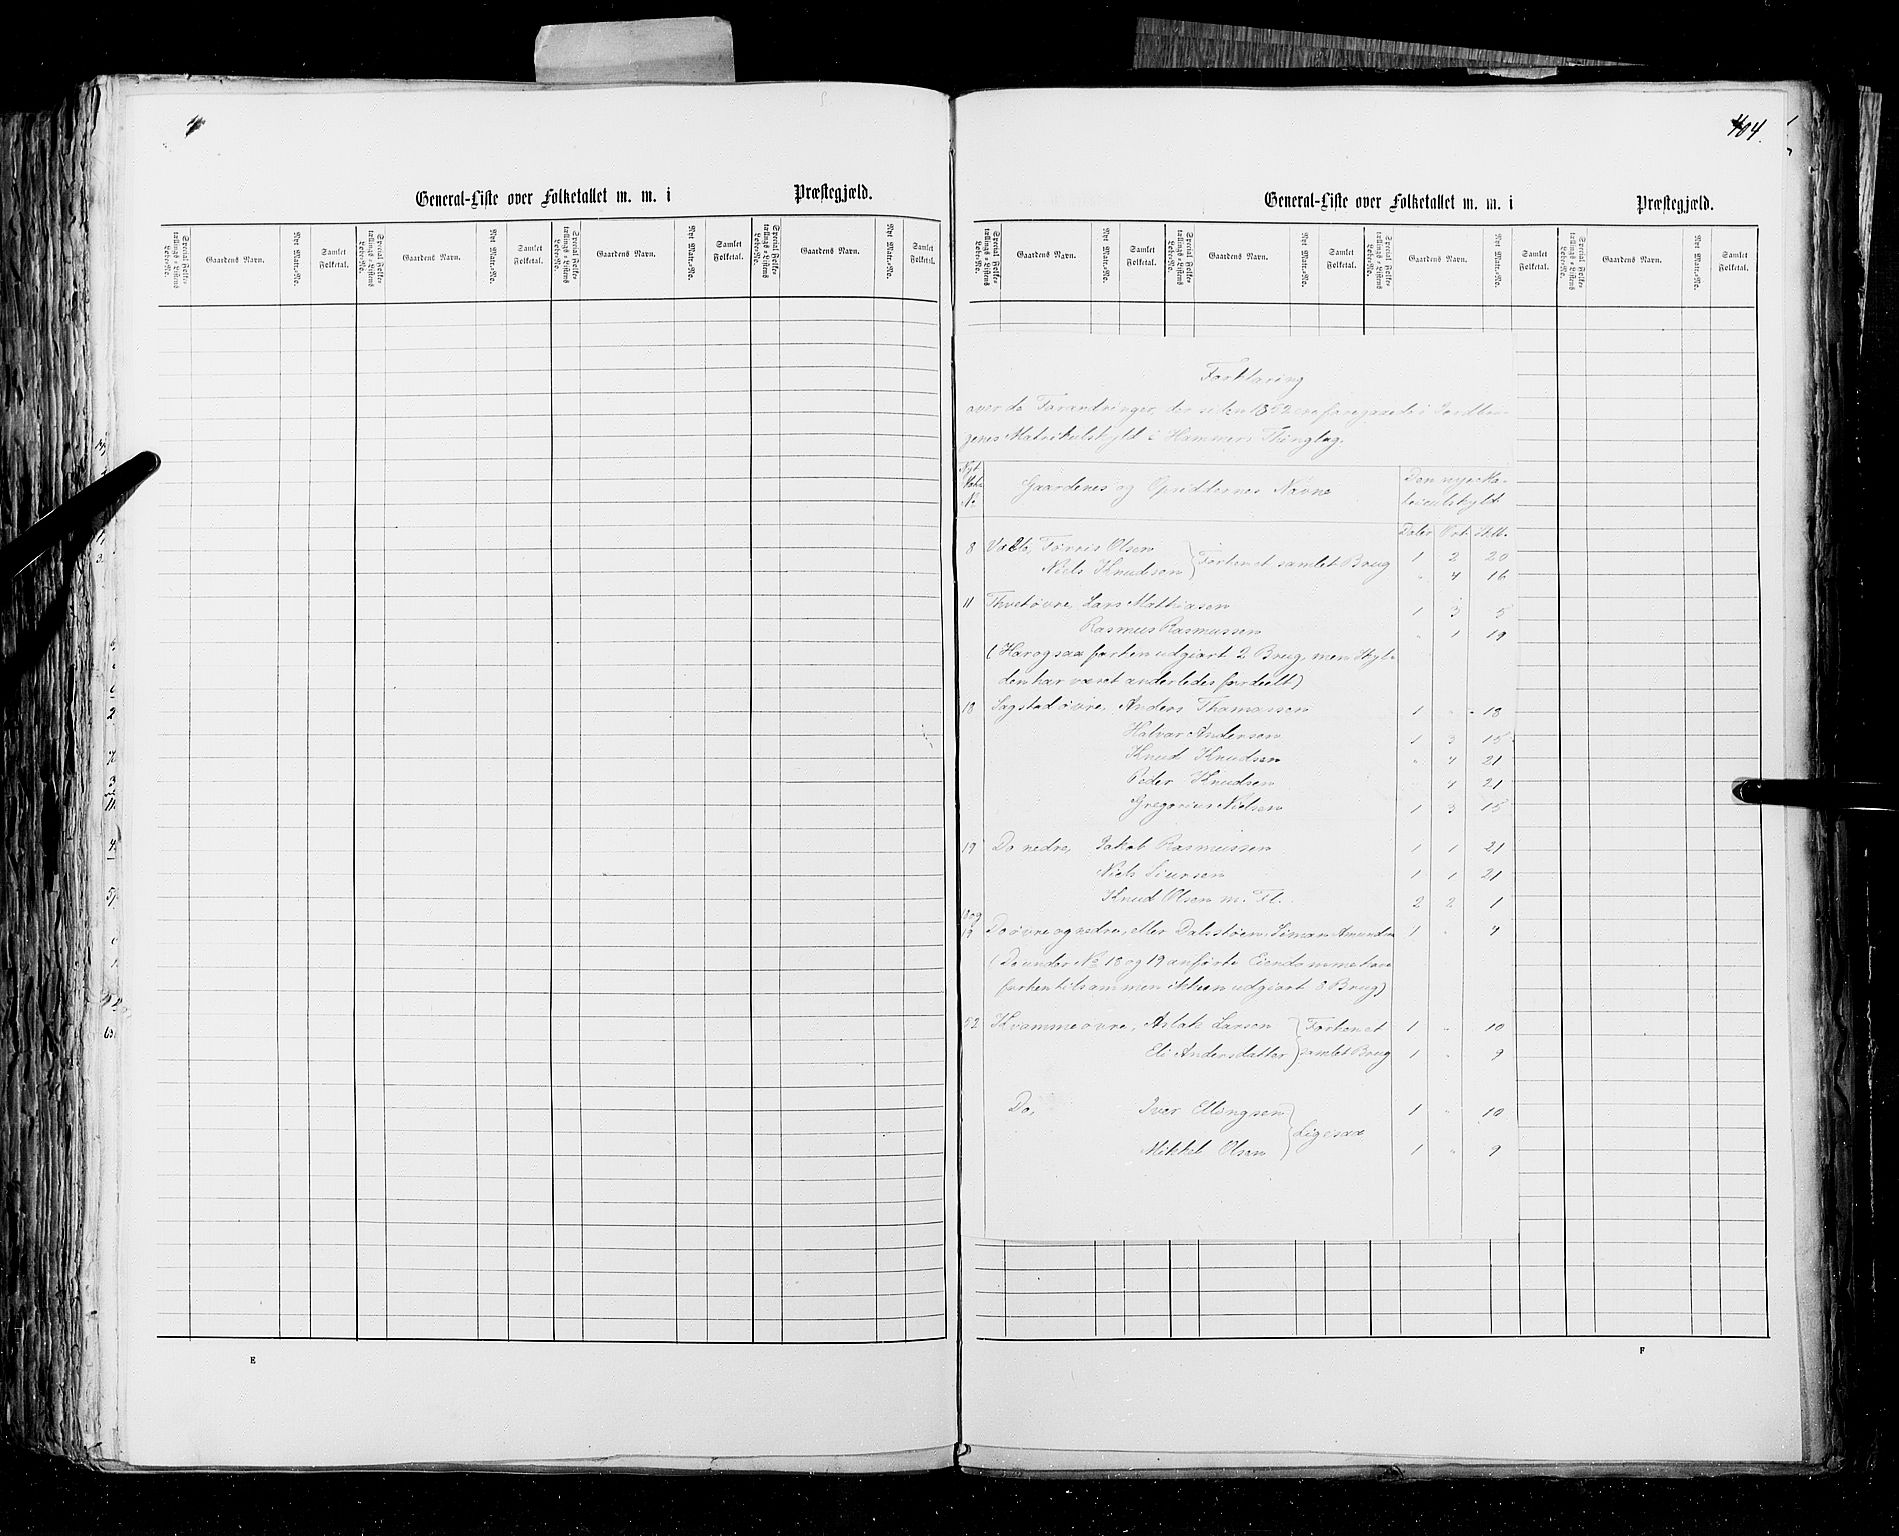 4
General-Liste over Folketallet m. m. i Præstegjæld.
Special Folketællings-Listens Lobe-No. Gaardens Navn. Nyt Matr.-No. Samlet Folketal. Special Folketællings-Listens Lobe-No. Gaardens Navn. Nyt Matr.-No. Samlet Folketal. Special Folketællings-Listens Lobe-No. Gaardens Navn. Nyt Matr.-No. Samlet Folketal. Special Folketællings-Listens Lobe-No. Gaardens Navn. Nyt Matr.-No. Samlet Folketal.
E
404.
General-Liste over Folketallet m. m. i Præstegjæld.
Special Folketællings-Listens Lobe-No. Gaardens Navn. Nyt Matr.-No. Samlet Folketal. Special Folketællings-Listens Lobe-No. Gaardens Navn. Nyt Matr.-No. Samlet Folketal. Special Folketællings-Listens Lobe-No. Gaardens Navn. Nyt Matr.-No. Samlet Folketal. Special Folketællings-Listens Lobe-No. Gaardens Navn. Nyt Matr.-No. Samlet Folketal.
Forklaring
over de Forandringer, der siden 1852 ere foregaaede i Jordbru-
genes Matrikulskyld i Hammers Thinglag.
Nyt Matr. No Gaardenes og Opsiddernes Navne Den nye Ma-
trikulskyld
Daler Ort Skil.
8 Tørris Olsen 1 2 20
Niels Knudsen } Før kun et samlet Brug " 4 16
11 Thveitøvre, Lars Mathiasen 1 3 5
Rasmus Rasmussen " 1 19
(Har ogsaa før kun udgiort 2 Brug, men Skyl-
den har været anderledes fordeelt)
18 Sagstad øvre, Anders Thomassen 1 " 18
Halvor Andersen 1 3 15
Knud Knudsen " 4 21
Peder Knudsen " 4 21
Gregorius Nielsen 1 3 15
19 Do nedre, Jakob Rasmussen 1 1 21
Niels Siursen 1 1 21
Knud Olsen m. Fl. 2 2 1
18 og
19 Do øvre og nedre, eller Dalstøen, Simon Amundsen 1 " 4
(De under No 18 og 19 anførte Eiendomme have
før kun tilsammen udgiort 8 Brug)
52 Kvamme øvre, Aslak Larsen } Før kun et 1 " 10
Eli Andersdatter } samlet Brug 1 " 9
Do, Iver Ellingsen 1 " 10
} Ligesaa
Mikkel Olsen 1 " 9
F